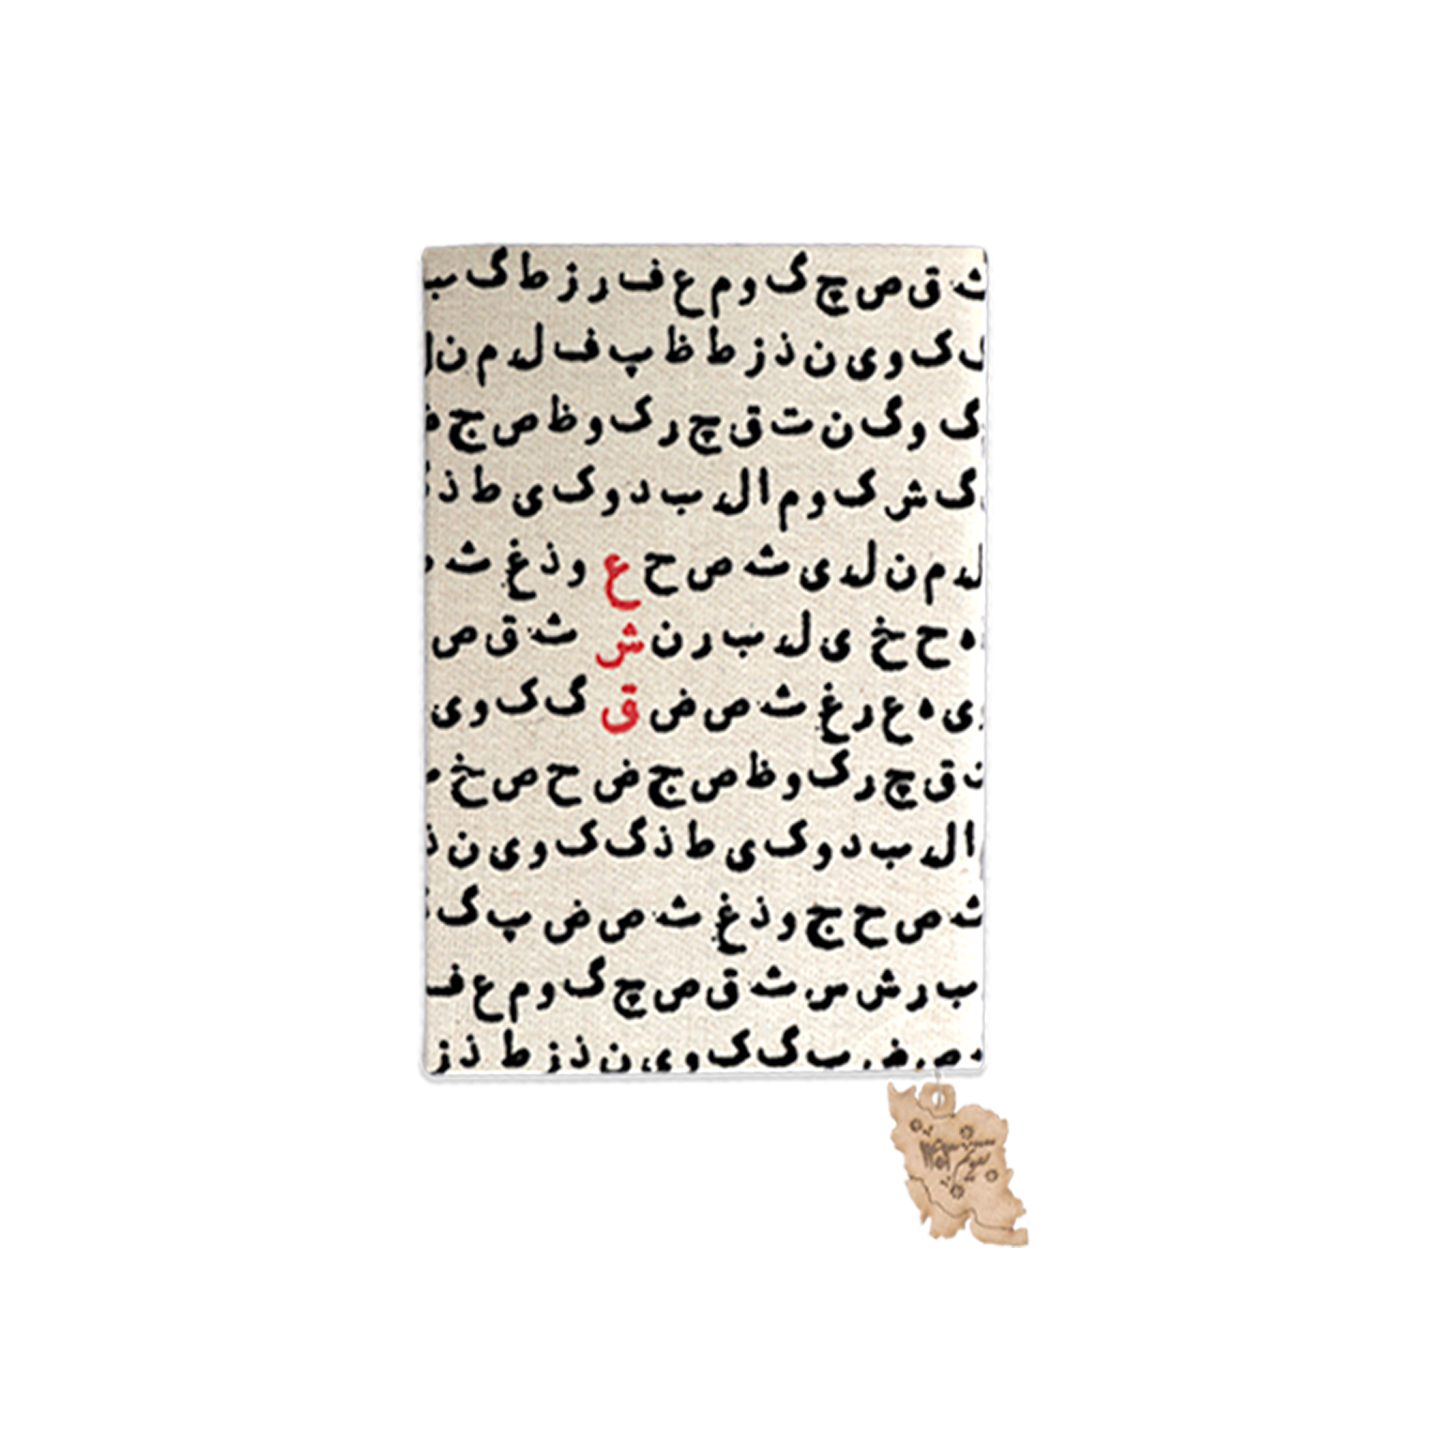 ث ق ص چ گ و م ع ف ر ز ط گ ب
ک و ی ن ذ ز ط ظ پ ف ل م ن ل
گ و گ ن ت ق چ ر ک و ظ ص ج ض
گ ش ک و م ا ل ب د و ک ی ط ذ گ
ل م ن ل ی ث ص ح ع و ذ غ ث
ه ح خ ی ل ب ر ن ش ث ق ص
ی ه ع ر غ ث ص ض ق گ ک و ی
ت ق چ ر ک و ظ ص ج ض ح ص خ
ا ل ب د و ک ی ط ذ گ ک و ی ن ذ
ث ص ح ج و ذ غ ث ص ض پ گ
ب ر ش س ث ق ص چ گ و م ع ف
ص ض ب گ ک و ی ن ذ ز ط ذ ز